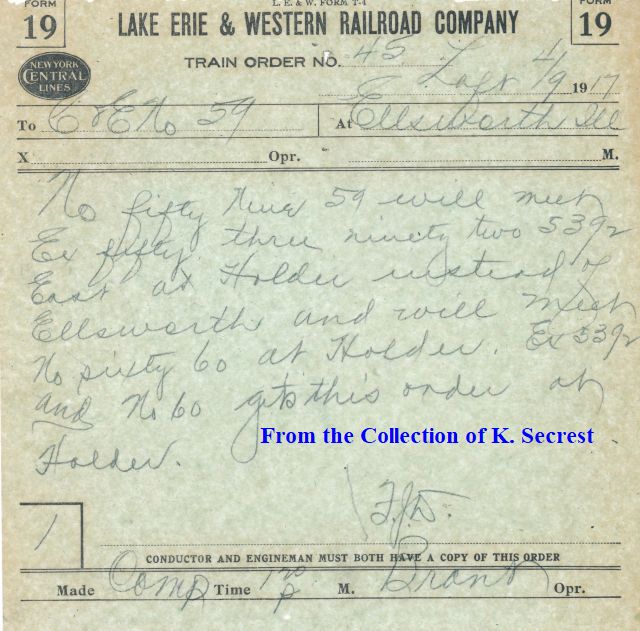 FORM 19
L. E. & W. FORM T-4
FORM 19
LAKE ERIE & WESTERN RAILROAD COMPANY
NEW YORK CENTRAL LINES
TRAIN ORDER NO. 45
Laft 4/9 1917
To C & E No 59 At Ellsworth Ill
X Opr. M.
No fifty Nine 59 will meet
Ex fifty three ninety two 5392
East at Holder instead of
Ellsworth and will meet
No sixty 60 at Holder. Ex 5392
and No 60 gets this order at
Holder.
From the Collection of K. Secrest
1
CONDUCTOR AND ENGINEMAN MUST BOTH HAVE A COPY OF THIS ORDER
Made Comp Time P M. Brant Opr.